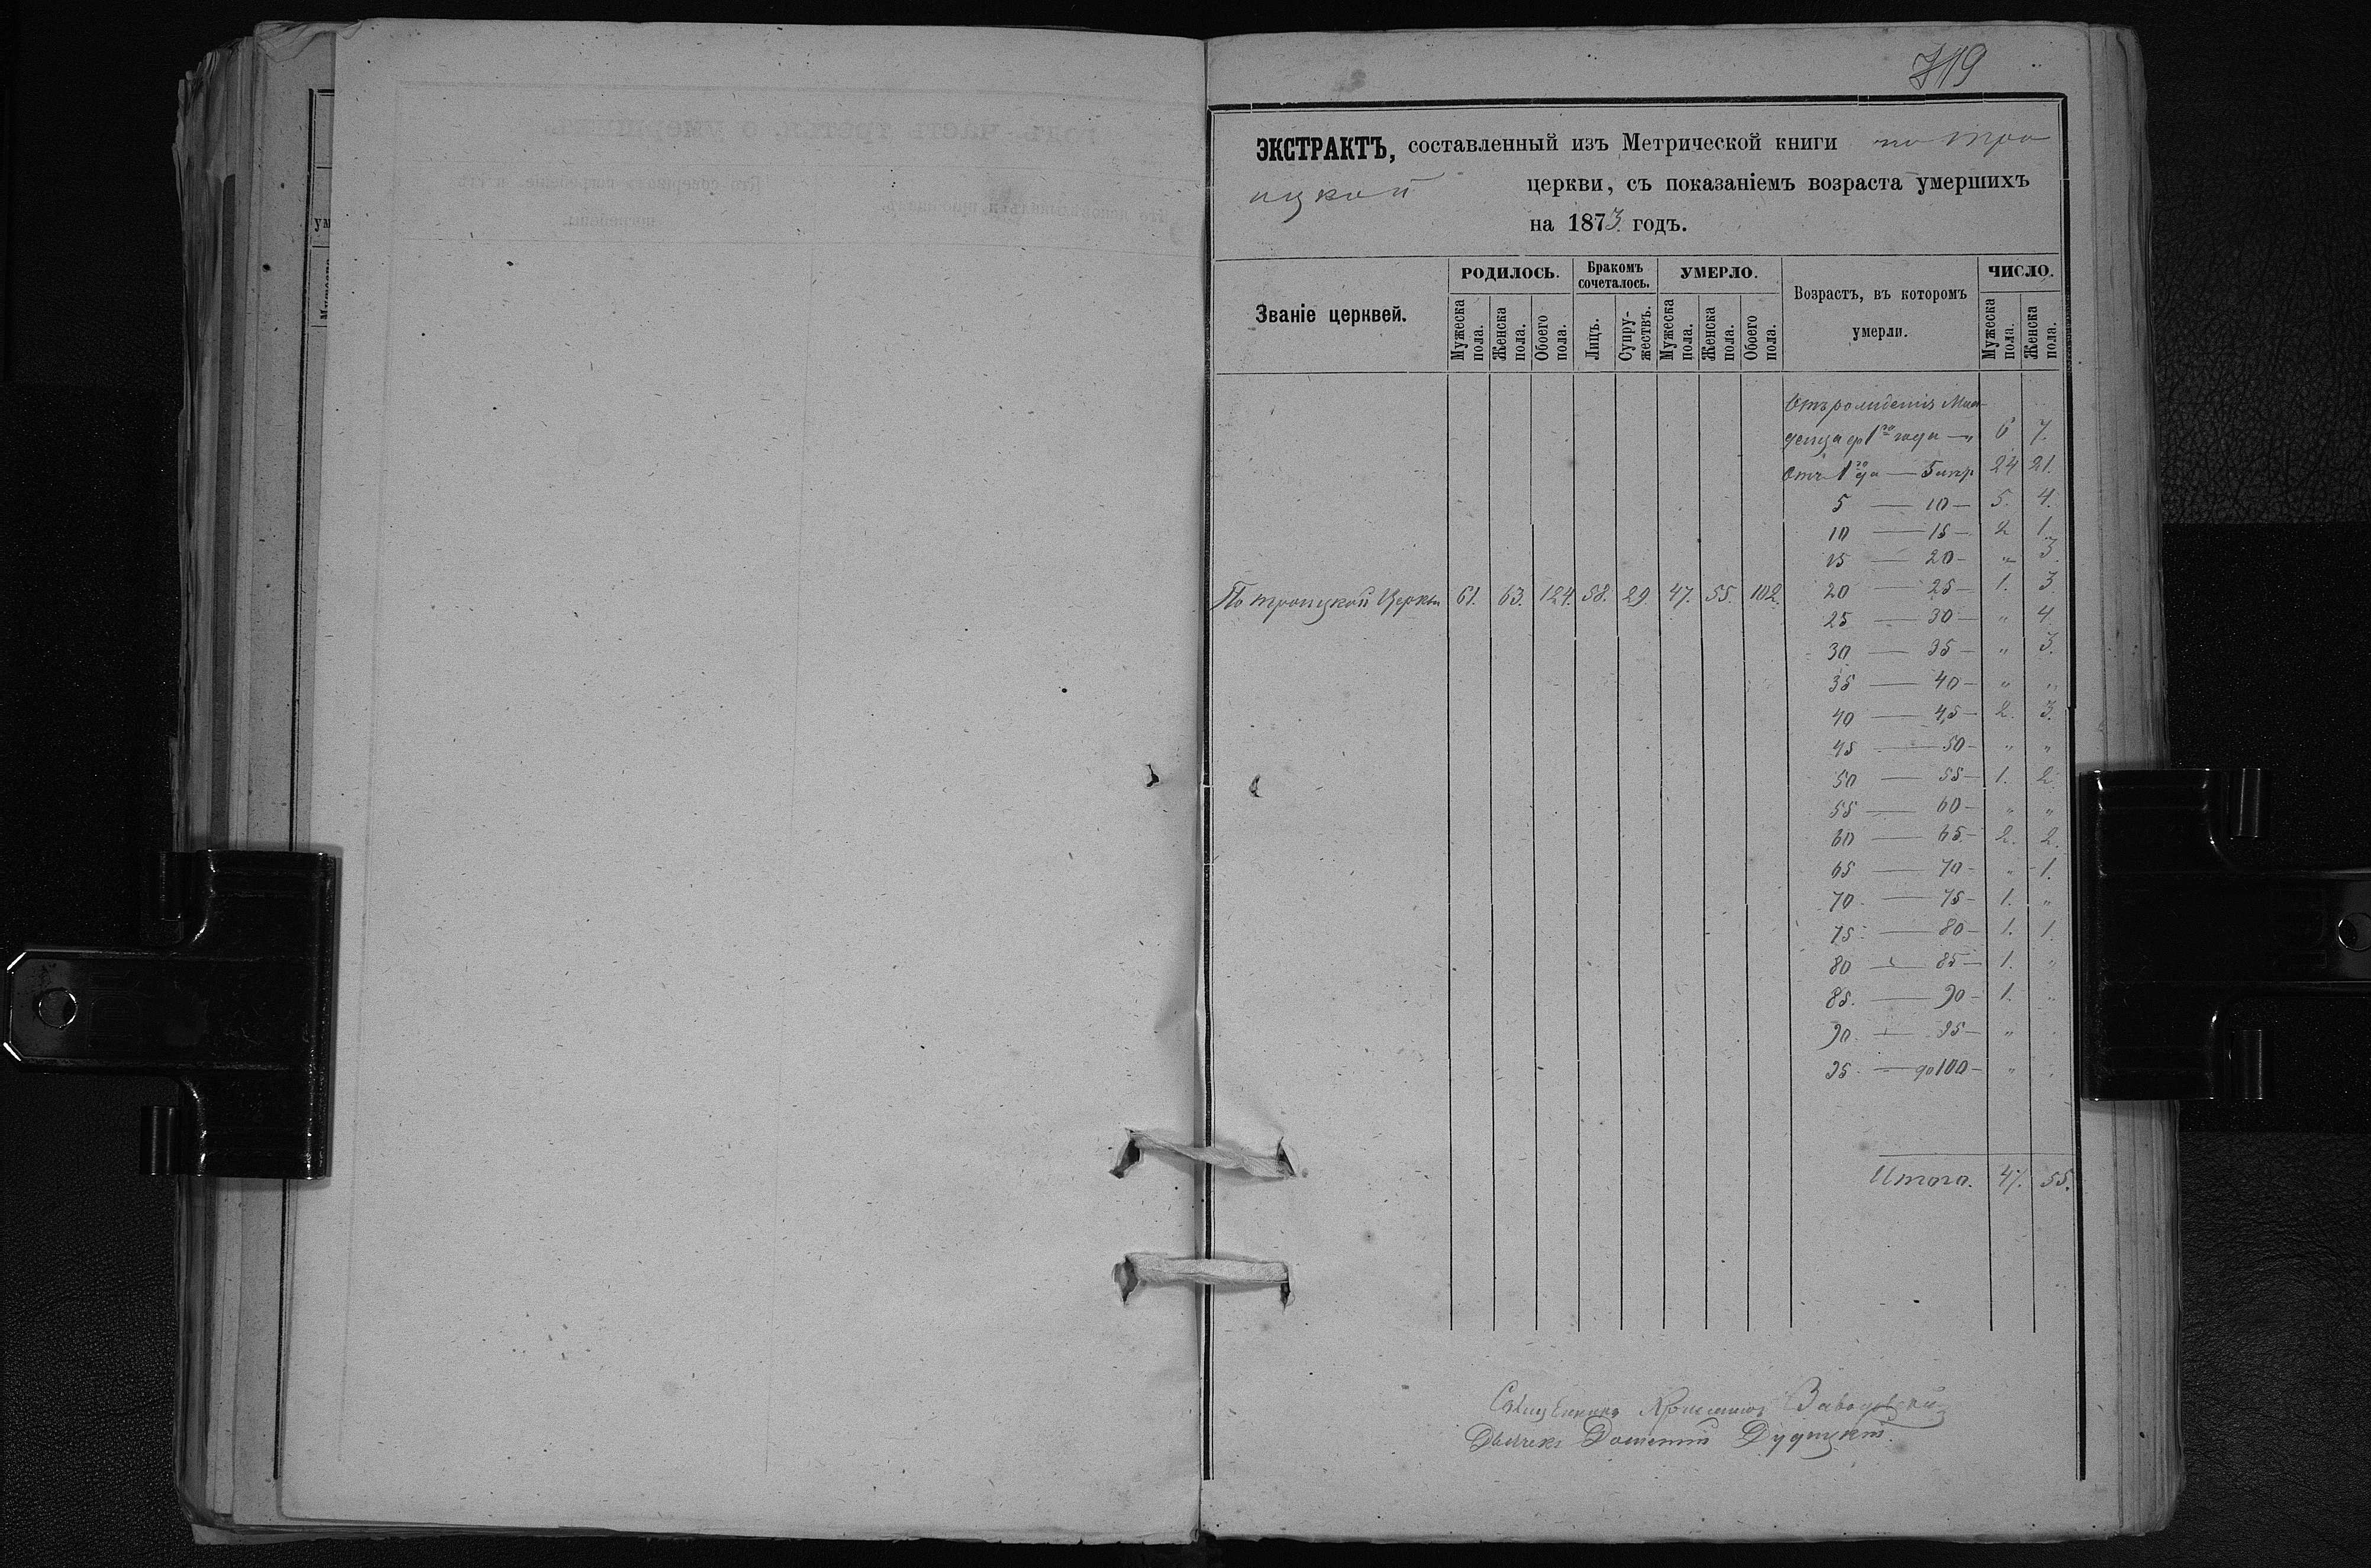 719
ЭКСТРАКТЪ, составленный изъ Метрической книги по тро
ицкой церкви, съ показаніемъ возраста умершихъ
на 1873 годъ.
Званіе церквей.
РОДИЛОСЬ.
Бракомъ сочеталось.
УМЕРЛО.
Возрастъ, въ которомъ умерли.
ЧИСЛО.
Мужеска пола.
Женска пола.
Обоего пола.
Лицъ.
Супружествъ.
Мужеска пола.
Женска пола.
Обоего пола.
Мужеска пола.
Женска пола.
По троицкой Церкви 61. 63. 124. 58. 29. 47. 55. 102.
Отъ рожденія Мла-
денца до 1го года — " 6 7.
Отъ 1го до — 5 24 21.
5 — 10 — 5. 4.
10 — 15 — 2 1.
15 — 20 — " 3.
20 — 25 — 1. 3.
25 — 30 — " 4.
30 — 35 — " 3.
35 — 40 — " "
40 — 45 — 2. 3.
45 — 50 — " "
50 — 55 — 1. 2.
55 — 60 — " "
60 — 65 — 2. 2.
65 — 70 — " 1.
70 — 75 — 1. "
75 — 80 — 1. 1.
80 — 85 — 1. "
85 — 90 — 1. "
90 — 95 — " "
95 — до 100 — " "
Итого. 47. 55.
Священникъ Заводовскій
Дьячекъ Дудицкій